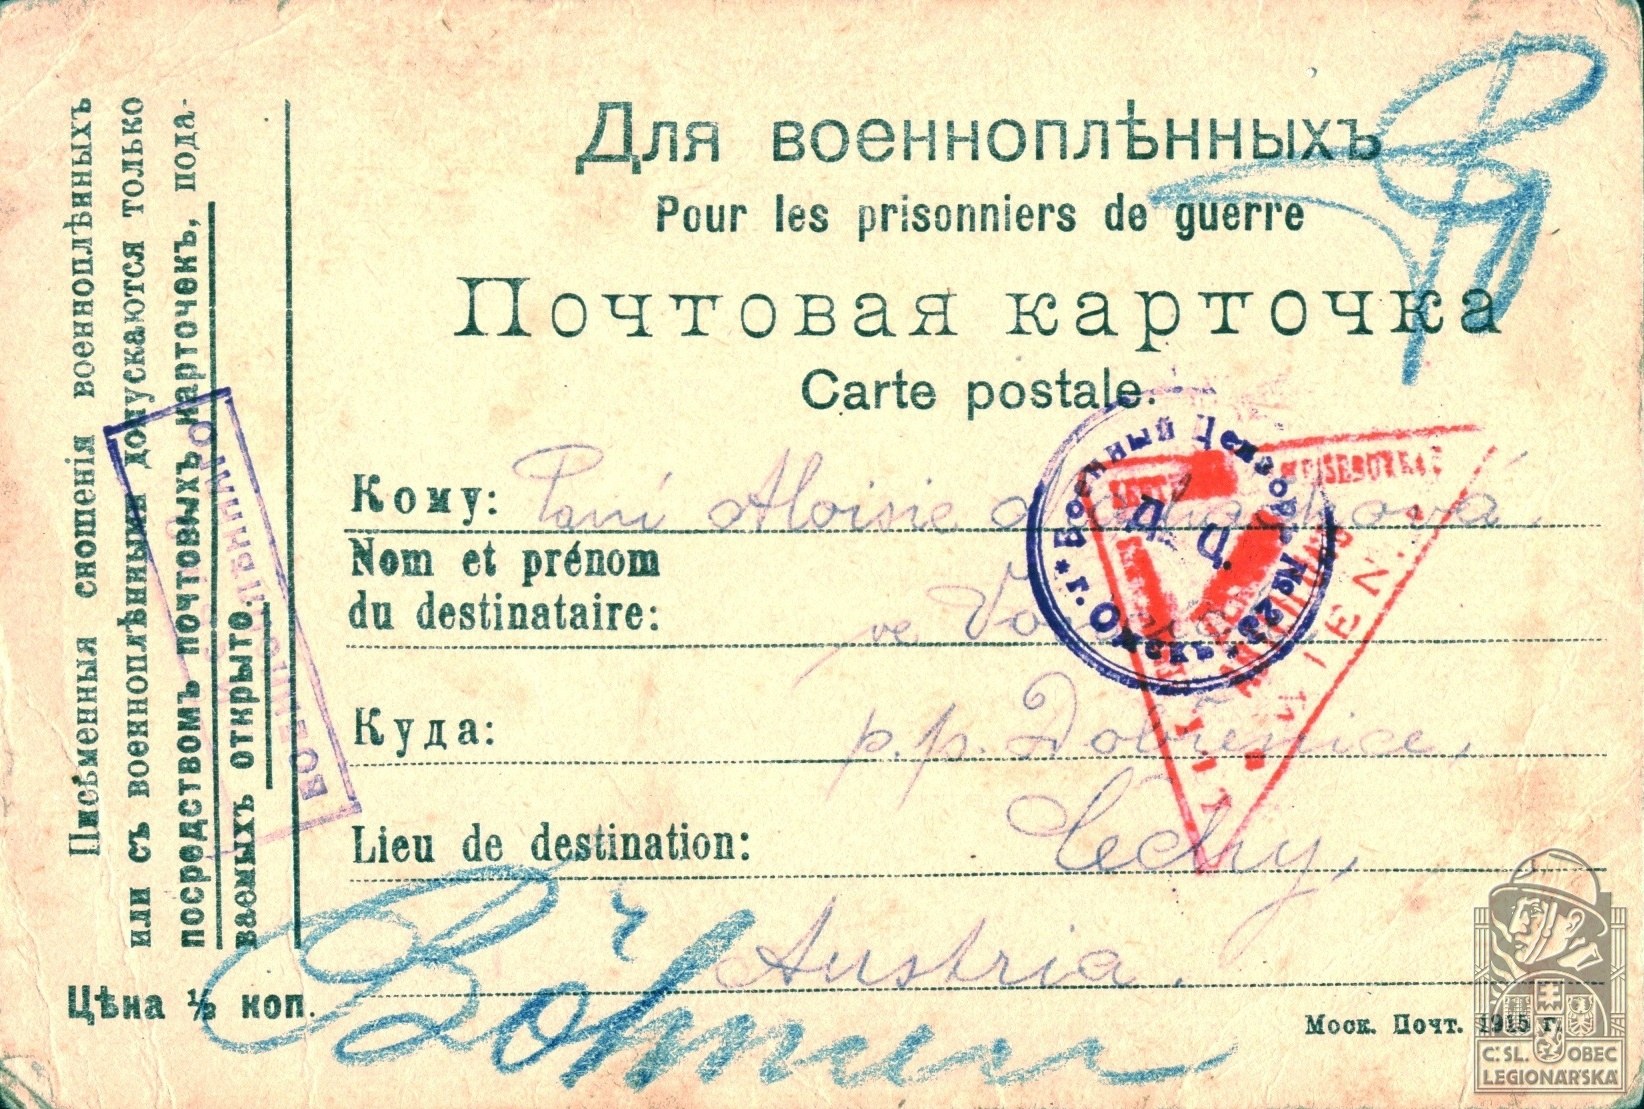 Для военноплѣнныхъ
Pour les prisonniers de guerre
Почтовая карточка
Carte postale.
Кому: Paní Aloisie
Nom et prénom
du destinataire: ve
Куда: p. p. Dobřenice,
Lieu de destination: Čechy,
Austria.
Böhmen
Письменныя сношенія военноплѣнныхъ
или съ военноплѣнными допускаются только
посредствомъ почтовыхъ карточекъ, пода-
ваемыхъ открыто.
Цѣна ½ коп.
Моск. Почт. 1915 г.
Военный Цензоръ № 23 * г. Омскъ *
Д. Ц.
WIEN.
Č. SL. OBEC
LEGIONÁŘSKÁ